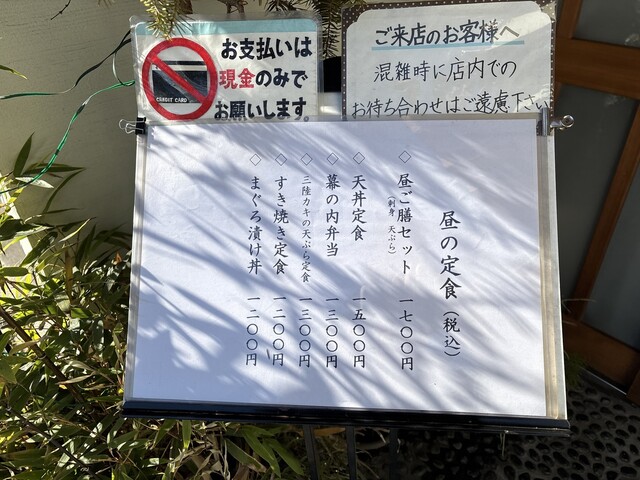 お支払いは
現金のみで
お願いします。
CREDIT CARD
ご来店のお客様へ
混雑時に店内での
お待ち合わせはご遠慮下さい
昼の定食(税込)
◇昼ご膳セット(刺身 天ぷら) 一七〇〇円
◇天丼定食 一五〇〇円
◇幕の内弁当 一三〇〇円
◇三陸カキの天ぷら定食 一三〇〇円
◇すき焼き定食 一二〇〇円
◇まぐろ漬け丼 一二〇〇円